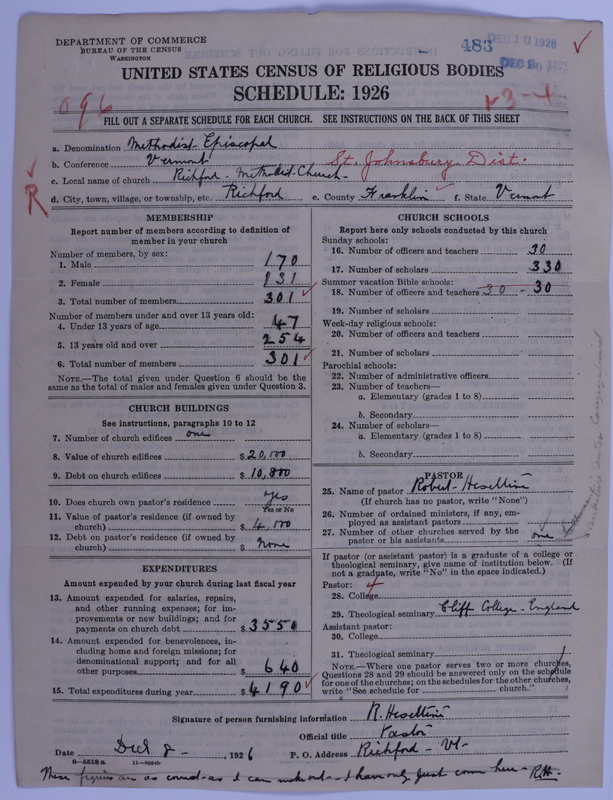 DEPARTMENT OF COMMERCE
BUREAU OF THE CENSUS
WASHINGTON
483
DEC 10 1926
UNITED STATES CENSUS OF RELIGIOUS BODIES
SCHEDULE: 1926
096
FILL OUT A SEPARATE SCHEDULE FOR EACH CHURCH. SEE INSTRUCTIONS ON THE BACK OF THIS SHEET
a. Denomination Methodist Episcopal
b. Conference Vermont St. Johnsbury Dist.
c. Local name of church Richford - Methodist Church
d. City, town, village, or township, etc. Richford e. County Franklin f. State Vermont
R
MEMBERSHIP
Report number of members according to definition of
member in your church
Number of members, by sex:
1. Male 170
2. Female 131
3. Total number of members 301
Number of members under and over 13 years old:
4. Under 13 years of age 47
5. 13 years old and over 254
6. Total number of members 301
NOTE.—The total given under Question 6 should be the
same as the total of males and females given under Question 3.
CHURCH BUILDINGS
See instructions, paragraphs 10 to 12
7. Number of church edifices one
8. Value of church edifices $20,000
9. Debt on church edifices $10,800
10. Does church own pastor's residence yes
Yes or No
11. Value of pastor's residence (if owned by
church) $4,000
12. Debt on pastor's residence (if owned by
church) $ none
EXPENDITURES
Amount expended by your church during last fiscal year
13. Amount expended for salaries, repairs,
and other running expenses; for im-
provements or new buildings; and for
payments on church debt $3550
14. Amount expended for benevolences, in-
cluding home and foreign missions; for
denominational support; and for all
other purposes $640
15. Total expenditures during year $4190
CHURCH SCHOOLS
Report here only schools conducted by this church
Sunday schools:
16. Number of officers and teachers 30
17. Number of scholars 330
Summer vacation Bible schools:
18. Number of officers and teachers 30 - 30
19. Number of scholars
Week-day religious schools:
20. Number of officers and teachers
21. Number of scholars
Parochial schools:
22. Number of administrative officers
23. Number of teachers—
a. Elementary (grades 1 to 8)
b. Secondary
24. Number of scholars—
a. Elementary (grades 1 to 8)
b. Secondary
PASTOR
25. Name of pastor Robert Heseltine
(If church has no pastor, write "None")
26. Number of ordained ministers, if any, em-
ployed as assistant pastors
27. Number of other churches served by the
pastor or his assistants one
If pastor (or assistant pastor) is a graduate of a college or
theological seminary, give name of institution below. (If
not a graduate, write "No" in the space indicated.)
Pastor:
28. College
29. Theological seminary Cliff College - England
Assistant pastor:
30. College
31. Theological seminary
NOTE.—Where one pastor serves two or more churches,
Questions 28 and 29 should be answered only on the schedule
for one of the churches; on the schedules for the other churches,
write "See schedule for church."
Signature of person furnishing information R. Heseltine
Official title Pastor
Date Dec 8 - , 1926 P. O. Address Richford - Vt-
8-5518a
These figures are as correct as I can make out - I have only just come here - RH.